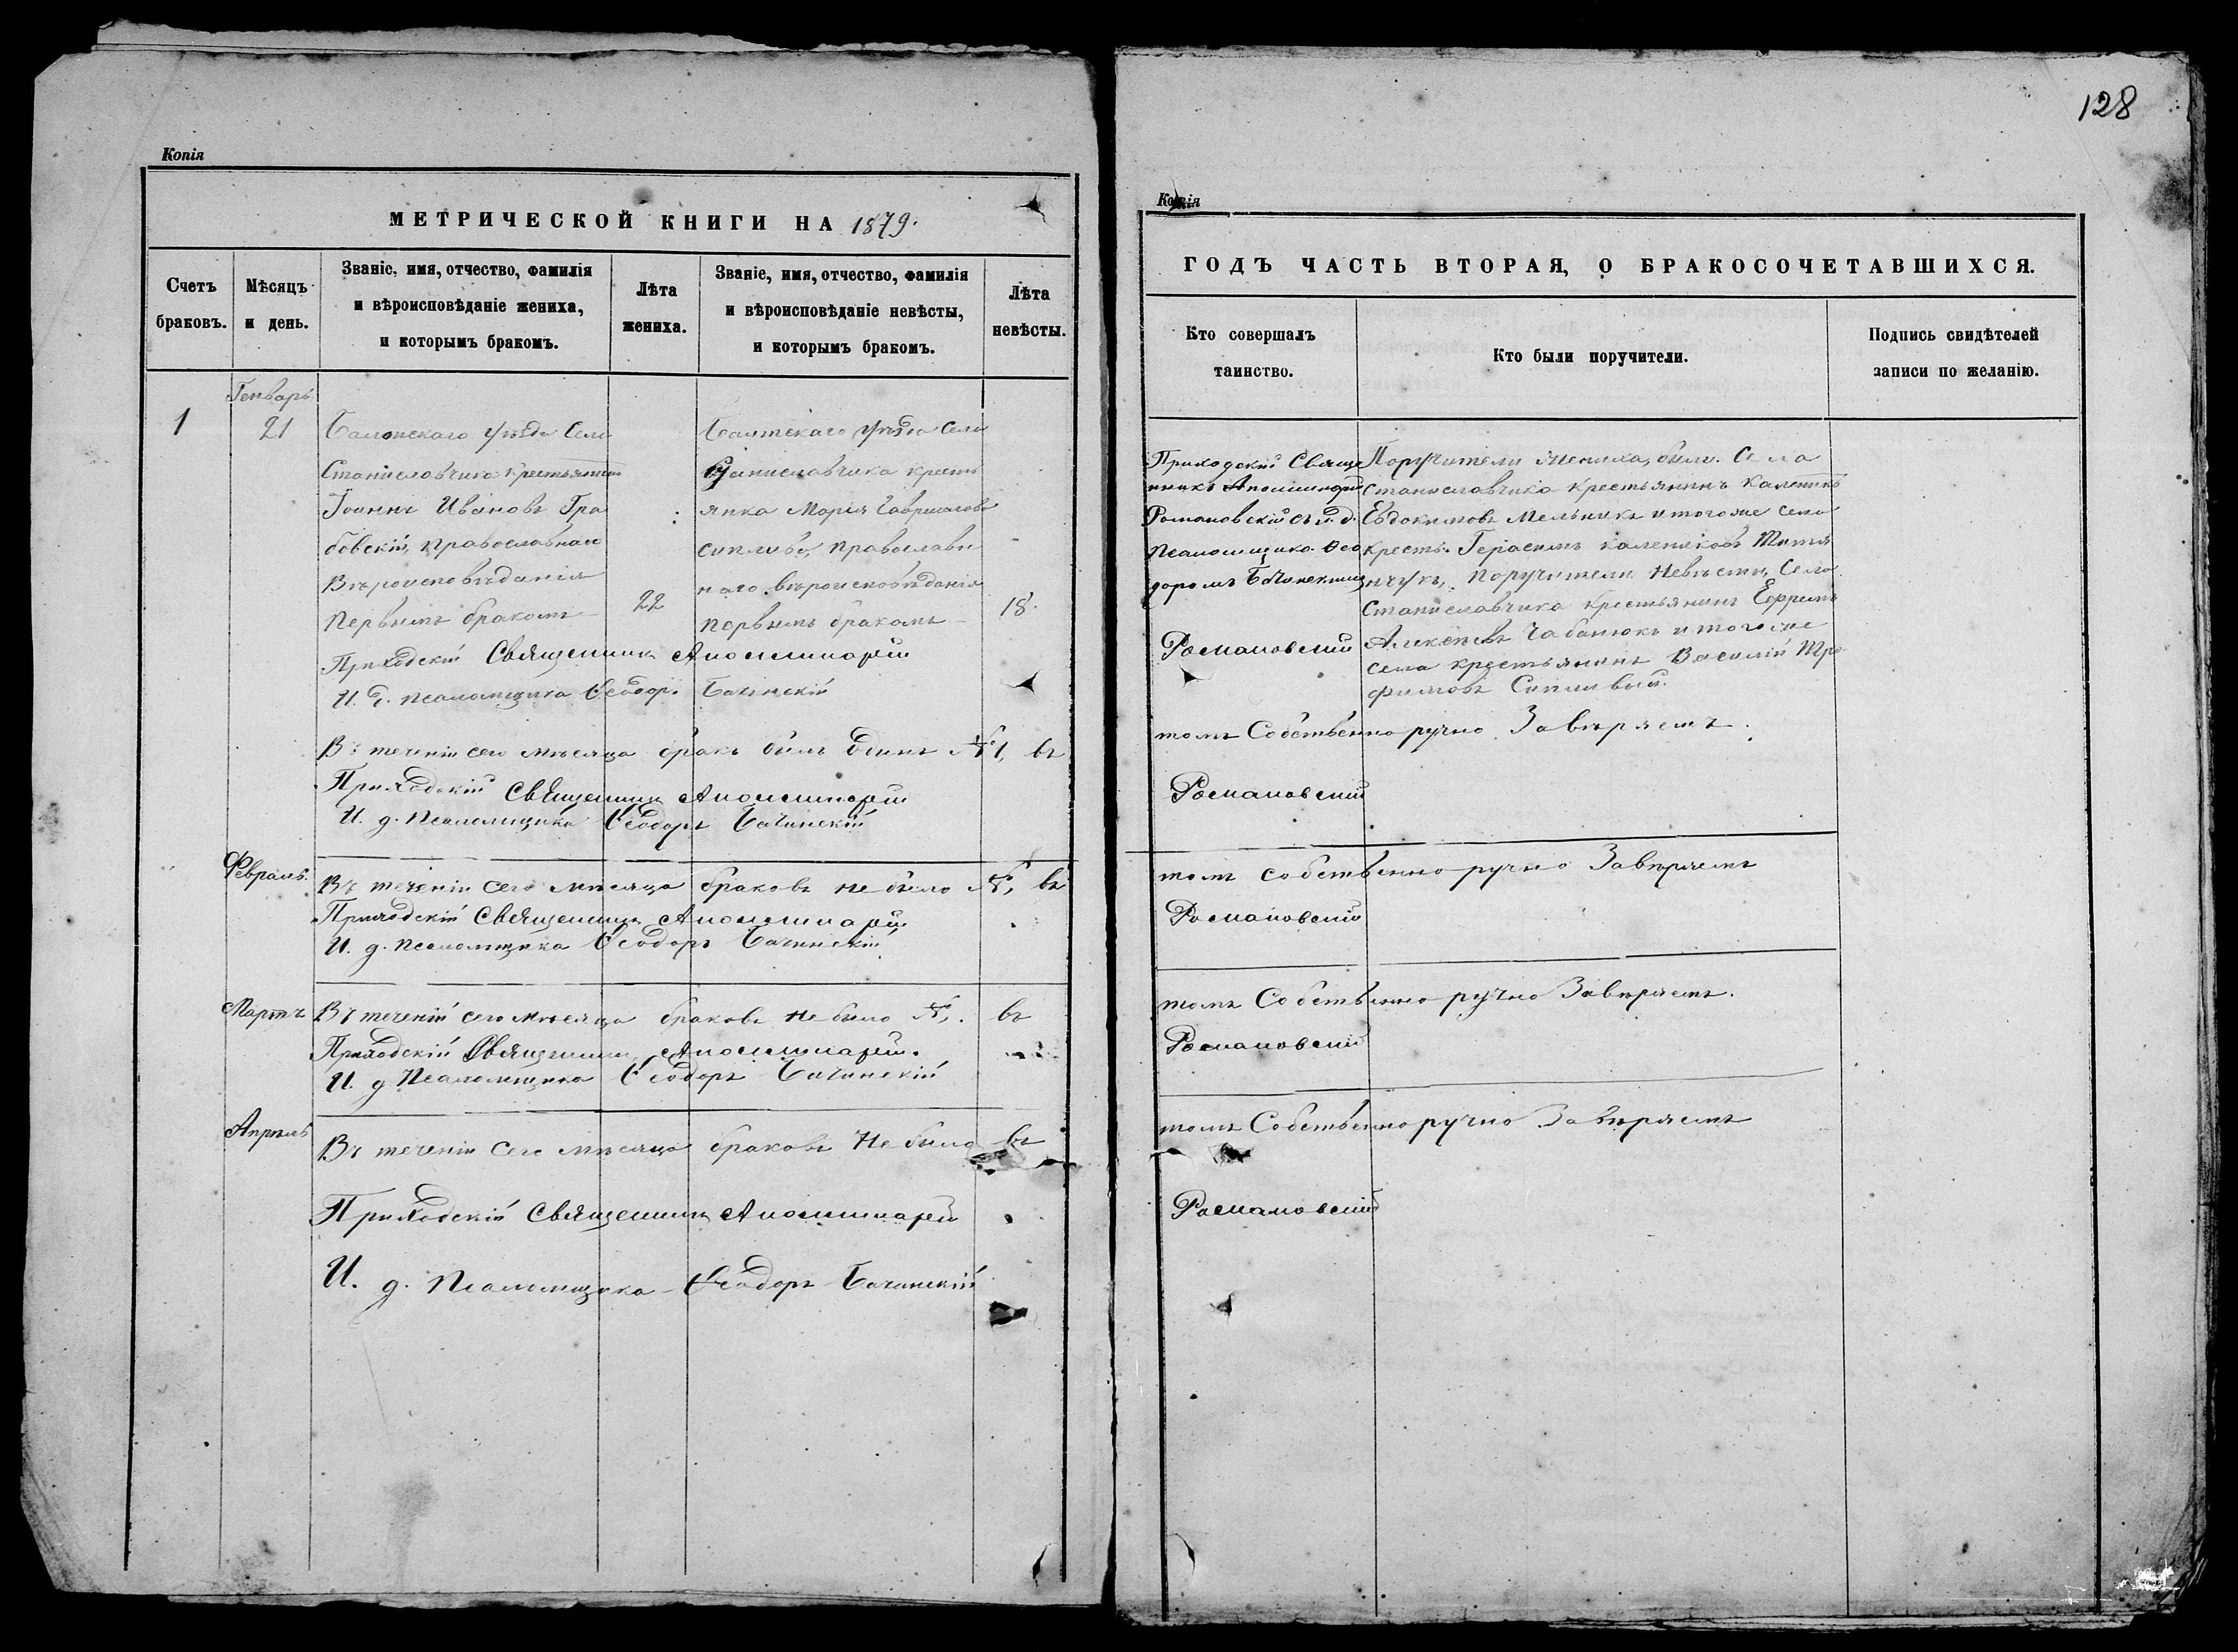 128
Копія
МЕТРИЧЕСКОЙ КНИГИ НА 1879.
Счетъ браковъ.
Мѣсяцъ и день.
Званіе, имя, отчество, фамилія и вѣроисповѣданіе жениха, и которымъ бракомъ.
Лѣта жениха.
Званіе, имя, отчество, фамилія и вѣроисповѣданіе невѣсты, и которымъ бракомъ.
Лѣта невѣсты.
Генварь
1
21
Балтскаго уѣзда Села
Станиславчика крестьянинъ
Іоаннъ Ивановъ Гра
бовскій, православнаго
Вѣроисповѣданія
первымъ бракомъ
22
Балтскаго уѣзда Села
Станиславчика кресть
янка Марія Гавриилова
Сиплива, православ
наго вѣроисповѣданія
первымъ бракомъ
18.
Приходскій Священникъ Аполлинарій
И. д. псаломщика Ѳеодоръ Бачинскій
Въ теченіи сего мѣсяца бракъ былъ одинъ № 1, въ
Приходскій Священникъ Аполлинарій
И. д. Псаломщика Ѳеодоръ Бачинскій
Февраль.
Въ теченіи сего мѣсяца браковъ не было №, въ
Приходскій Священникъ Аполлинарій
И. д. псаломщика Ѳеодоръ Бачинскій
Мартъ
Въ теченіи сего мѣсяца браковъ не было №. въ
Приходскій Священникъ Аполлинарій.
И. д Псаломщика Ѳеодоръ Бачинскій
Апрѣль
Въ теченіи сего мѣсяца браковъ не было въ
Приходскій Священникъ Аполлинарій
И. д. Псаломщика Ѳеодоръ Бачинскій
Копія
ГОДЪ ЧАСТЬ ВТОРАЯ, О БРАКОСОЧЕТАВШИХСЯ.
Кто совершалъ таинство.
Кто были поручители.
Подпись свидѣтелей записи по желанію.
Приходскій Свяще
нникъ Аполлинарій
Романовскій съ и. д.
псаломщика Ѳео
доромъ Бачинскимъ
Поручители Жениха, были: Села
Станиславчика крестьянинъ Каленикъ
Евдокимовъ Мельникъ и того же села
кресть. Герасимъ Калениковъ
поручители Невѣсты, Села
Станиславчика крестьянинъ Ефремъ
Алексѣевъ Чабанюкъ и того же
села крестьянинъ Василій Тро
фимовъ Сипливый.
Романовскій
томъ Собственноручно Завѣряемъ.
Романовскій
томъ собственноручно Завѣряемъ
Романовскій
томъ Собственноручно Завѣряемъ.
Романовскій
томъ Собственноручно Завѣряемъ
Романовскій